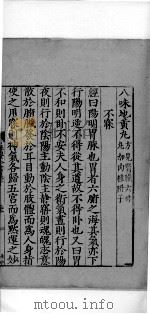 八味地黄丸 方見
不寐
經曰陽明胃脉也胃者六府之海其氣亦下
行陽明逆不得從其道故不得卧也又曰胃
不和則卧不安夫人身之衛氣晝則行於陽
夜則行於陰陽主動陰主静寤則魂魄志意
散於腑臟發於耳目動於肢體而為人身指
使之用寐則神氣各歸五宫而為黙運之妙
www.mtoou.info